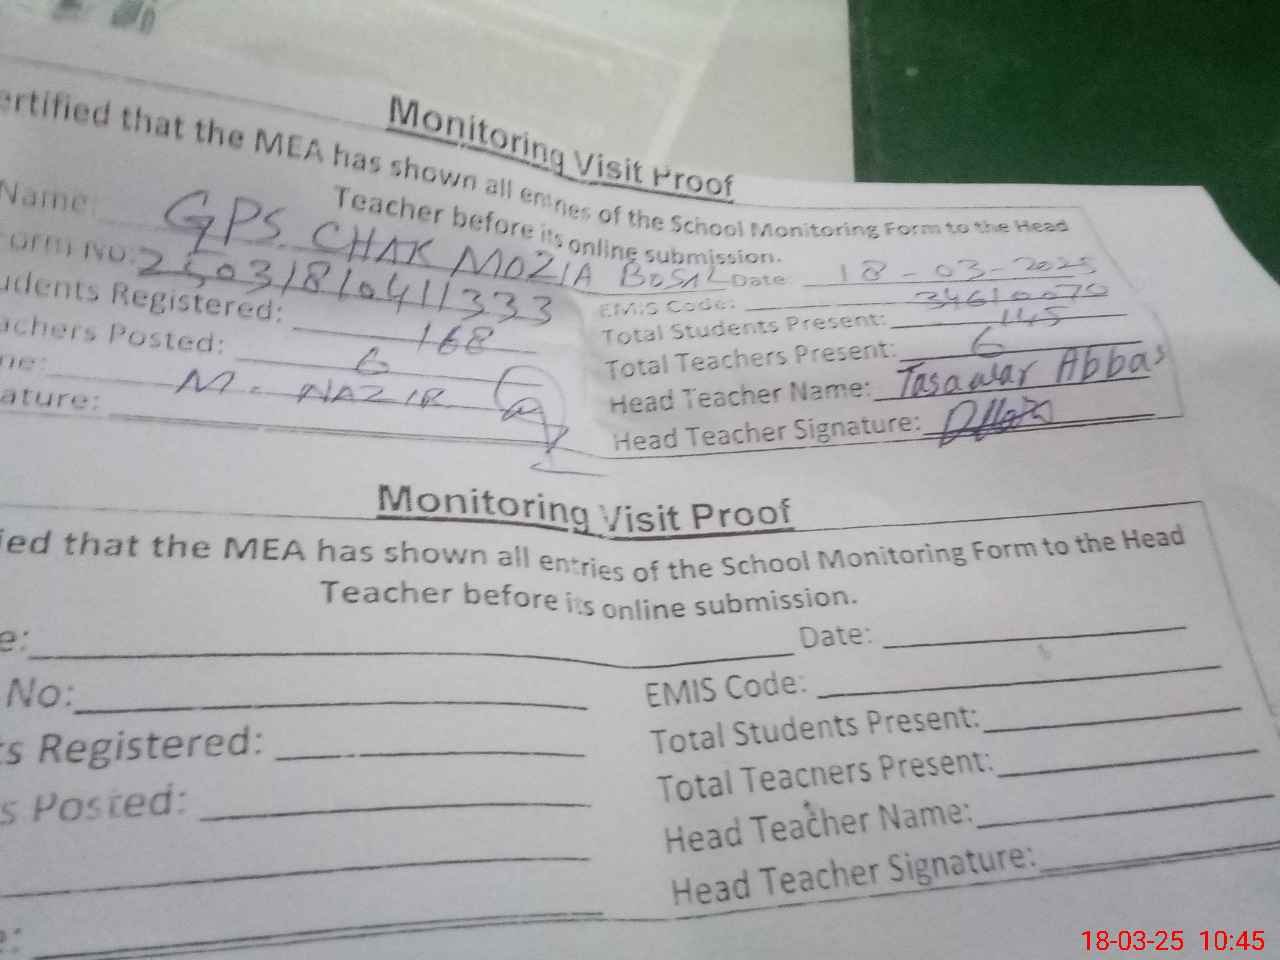 Monitoring Visit Proof
ertified that the MEA has shown all entries of the School Monitoring Form to the Head
Teacher before its online submission.
Name: GPS CHAK MOZIA BOSAL Date: 18-03-2025
orm No: 25031810411333 EMIS Code: 34610070
udents Registered: 168 Total Students Present: 145
achers Posted: 6 Total Teachers Present: 6
me: M. NAZIR Head Teacher Name: Tasawar Abbas
ature: Head Teacher Signature:
Monitoring Visit Proof
ied that the MEA has shown all entries of the School Monitoring Form to the Head
Teacher before its online submission.
e: Date:
No: EMIS Code:
ts Registered: Total Students Present:
s Posted: Total Teachers Present:
Head Teacher Name:
e: Head Teacher Signature:
18-03-25 10:45